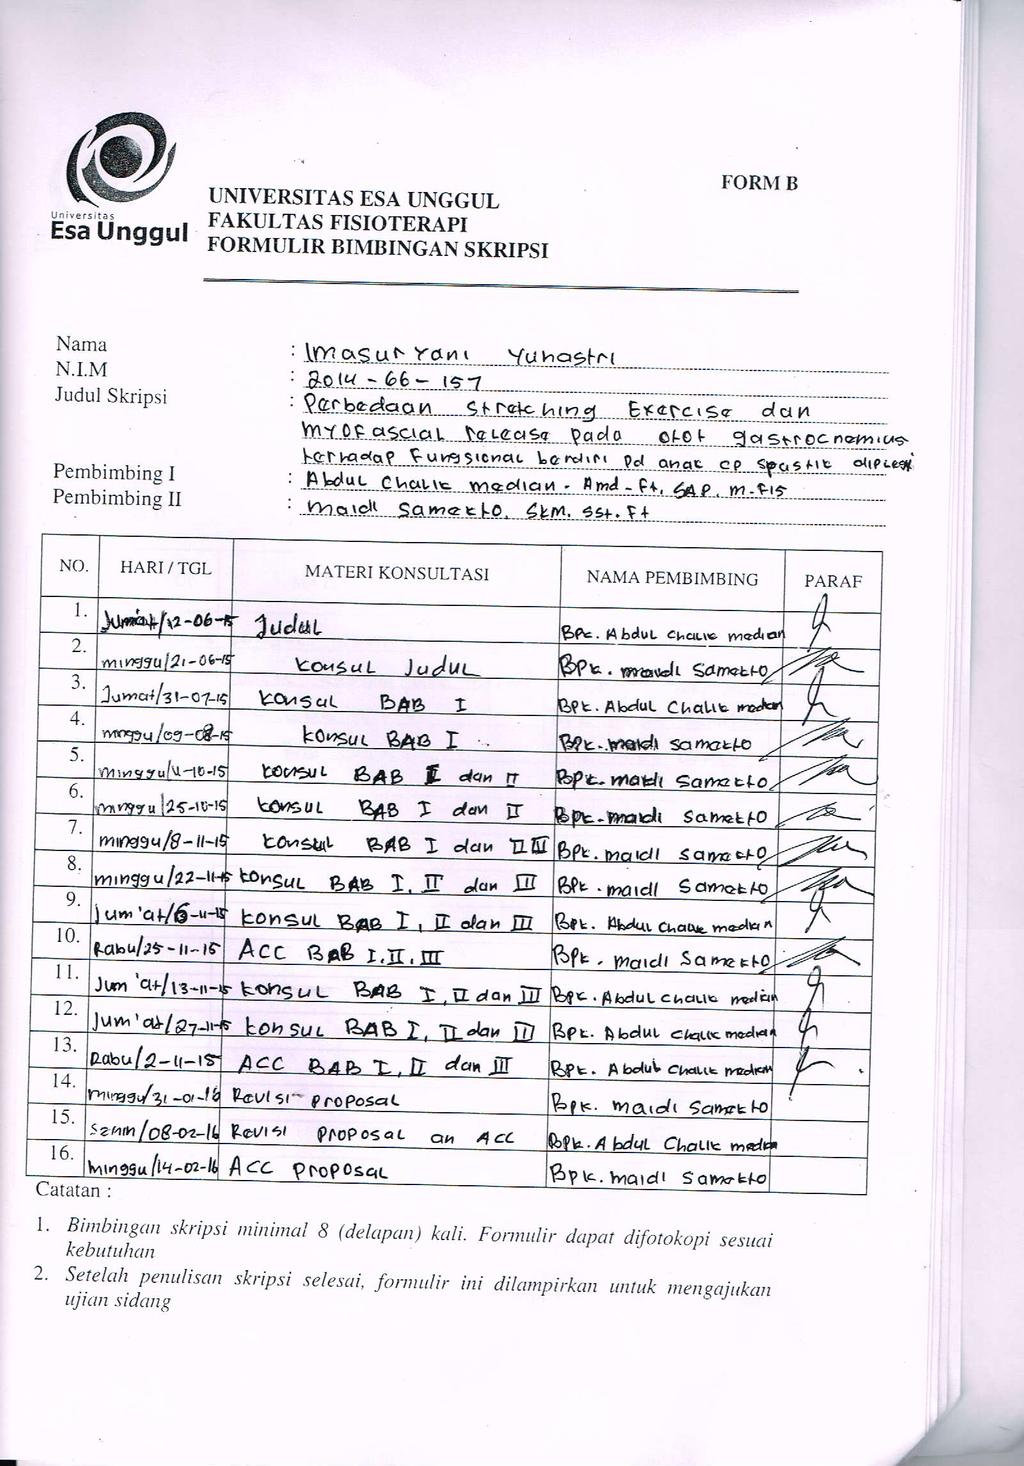 Universitas
Esa Unggul
FORM B
UNIVERSITAS ESA UNGGUL
FAKULTAS FISIOTERAPI
FORMULIR BIMBINGAN SKRIPSI
Nama : Imasur Yani Yunastri
N.I.M : 2014 - 66 - 157
Judul Skripsi : Perbedaan Stretching Exercise dan
Myofascial release pada otot gastrocnemius
terhadap Fungsional berdiri pd anak CP Spastik diplegi
Pembimbing I : Abdul Chalik median - Amd - Ft, SAP, M-Fis
Pembimbing II : Maidi Samekto, SKM, SSt. Ft
NO. HARI / TGL MATERI KONSULTASI NAMA PEMBIMBING PARAF
1. Jumat/12-06-15 Judul Bpk. Abdul Chalik median
2. minggu/21-06-15 Konsul Judul Bpk. maidi Samekto
3. Jumat/31-07-15 Konsul BAB I Bpk. Abdul Chalik median
4. minggu/09-08-15 Konsul BAB I Bpk. maidi samekto
5. minggu/11-10-15 Konsul BAB I dan II Bpk. maidi Samekto
6. minggu/25-10-15 Konsul BAB I dan II Bpk. maidi Samekto
7. minggu/8-11-15 Konsul BAB I dan III Bpk. maidi Samekto
8. minggu/22-11-15 Konsul BAB I, II dan III Bpk. maidi Samekto
9. Jum'at/6-11-15 Konsul BAB I, II dan III Bpk. Abdul Chalik median
10. Rabu/25-11-15 ACC BAB I.II.III Bpk. maidi Samekto
11. Jum'at/13-11-15 Konsul BAB I, II dan III Bpk. Abdul chalik median
12. Jum'at/27-11-15 Konsul BAB I, II dan III Bpk. Abdul Chalik median
13. Rabu/2-11-15 ACC BAB I, II dan III Bpk. Abdul Chalik median
14. minggu/31-01-16 Revisi proposal Bpk. maidi Samekto
15. Senin/08-02-16 Revisi proposal an ACC Bpk. Abdul Chalik median
16. minggu/14-02-16 ACC proposal Bpk. maidi Samekto
Catatan :
1. Bimbingan skripsi minimal 8 (delapan) kali. Formulir dapat difotokopi sesuai
kebutuhan
2. Setelah penulisan skripsi selesai, formulir ini dilampirkan untuk mengajukan
ujian sidang